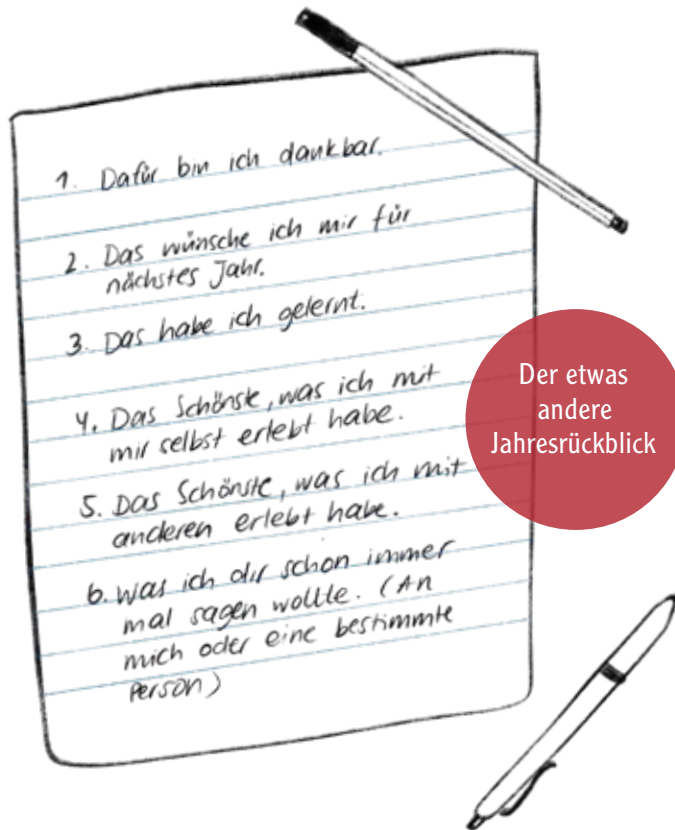 1. Dafür bin ich dankbar.
2. Das wünsche ich mir für
nächstes Jahr.
3. Das habe ich gelernt.
4. Das Schönste, was ich mit
mir selbst erlebt habe.
5. Das Schönste, was ich mit
anderen erlebt habe.
6. Was ich dir schon immer
mal sagen wollte. (An
mich oder eine bestimmte
Person)
Der etwas
andere
Jahresrückblick